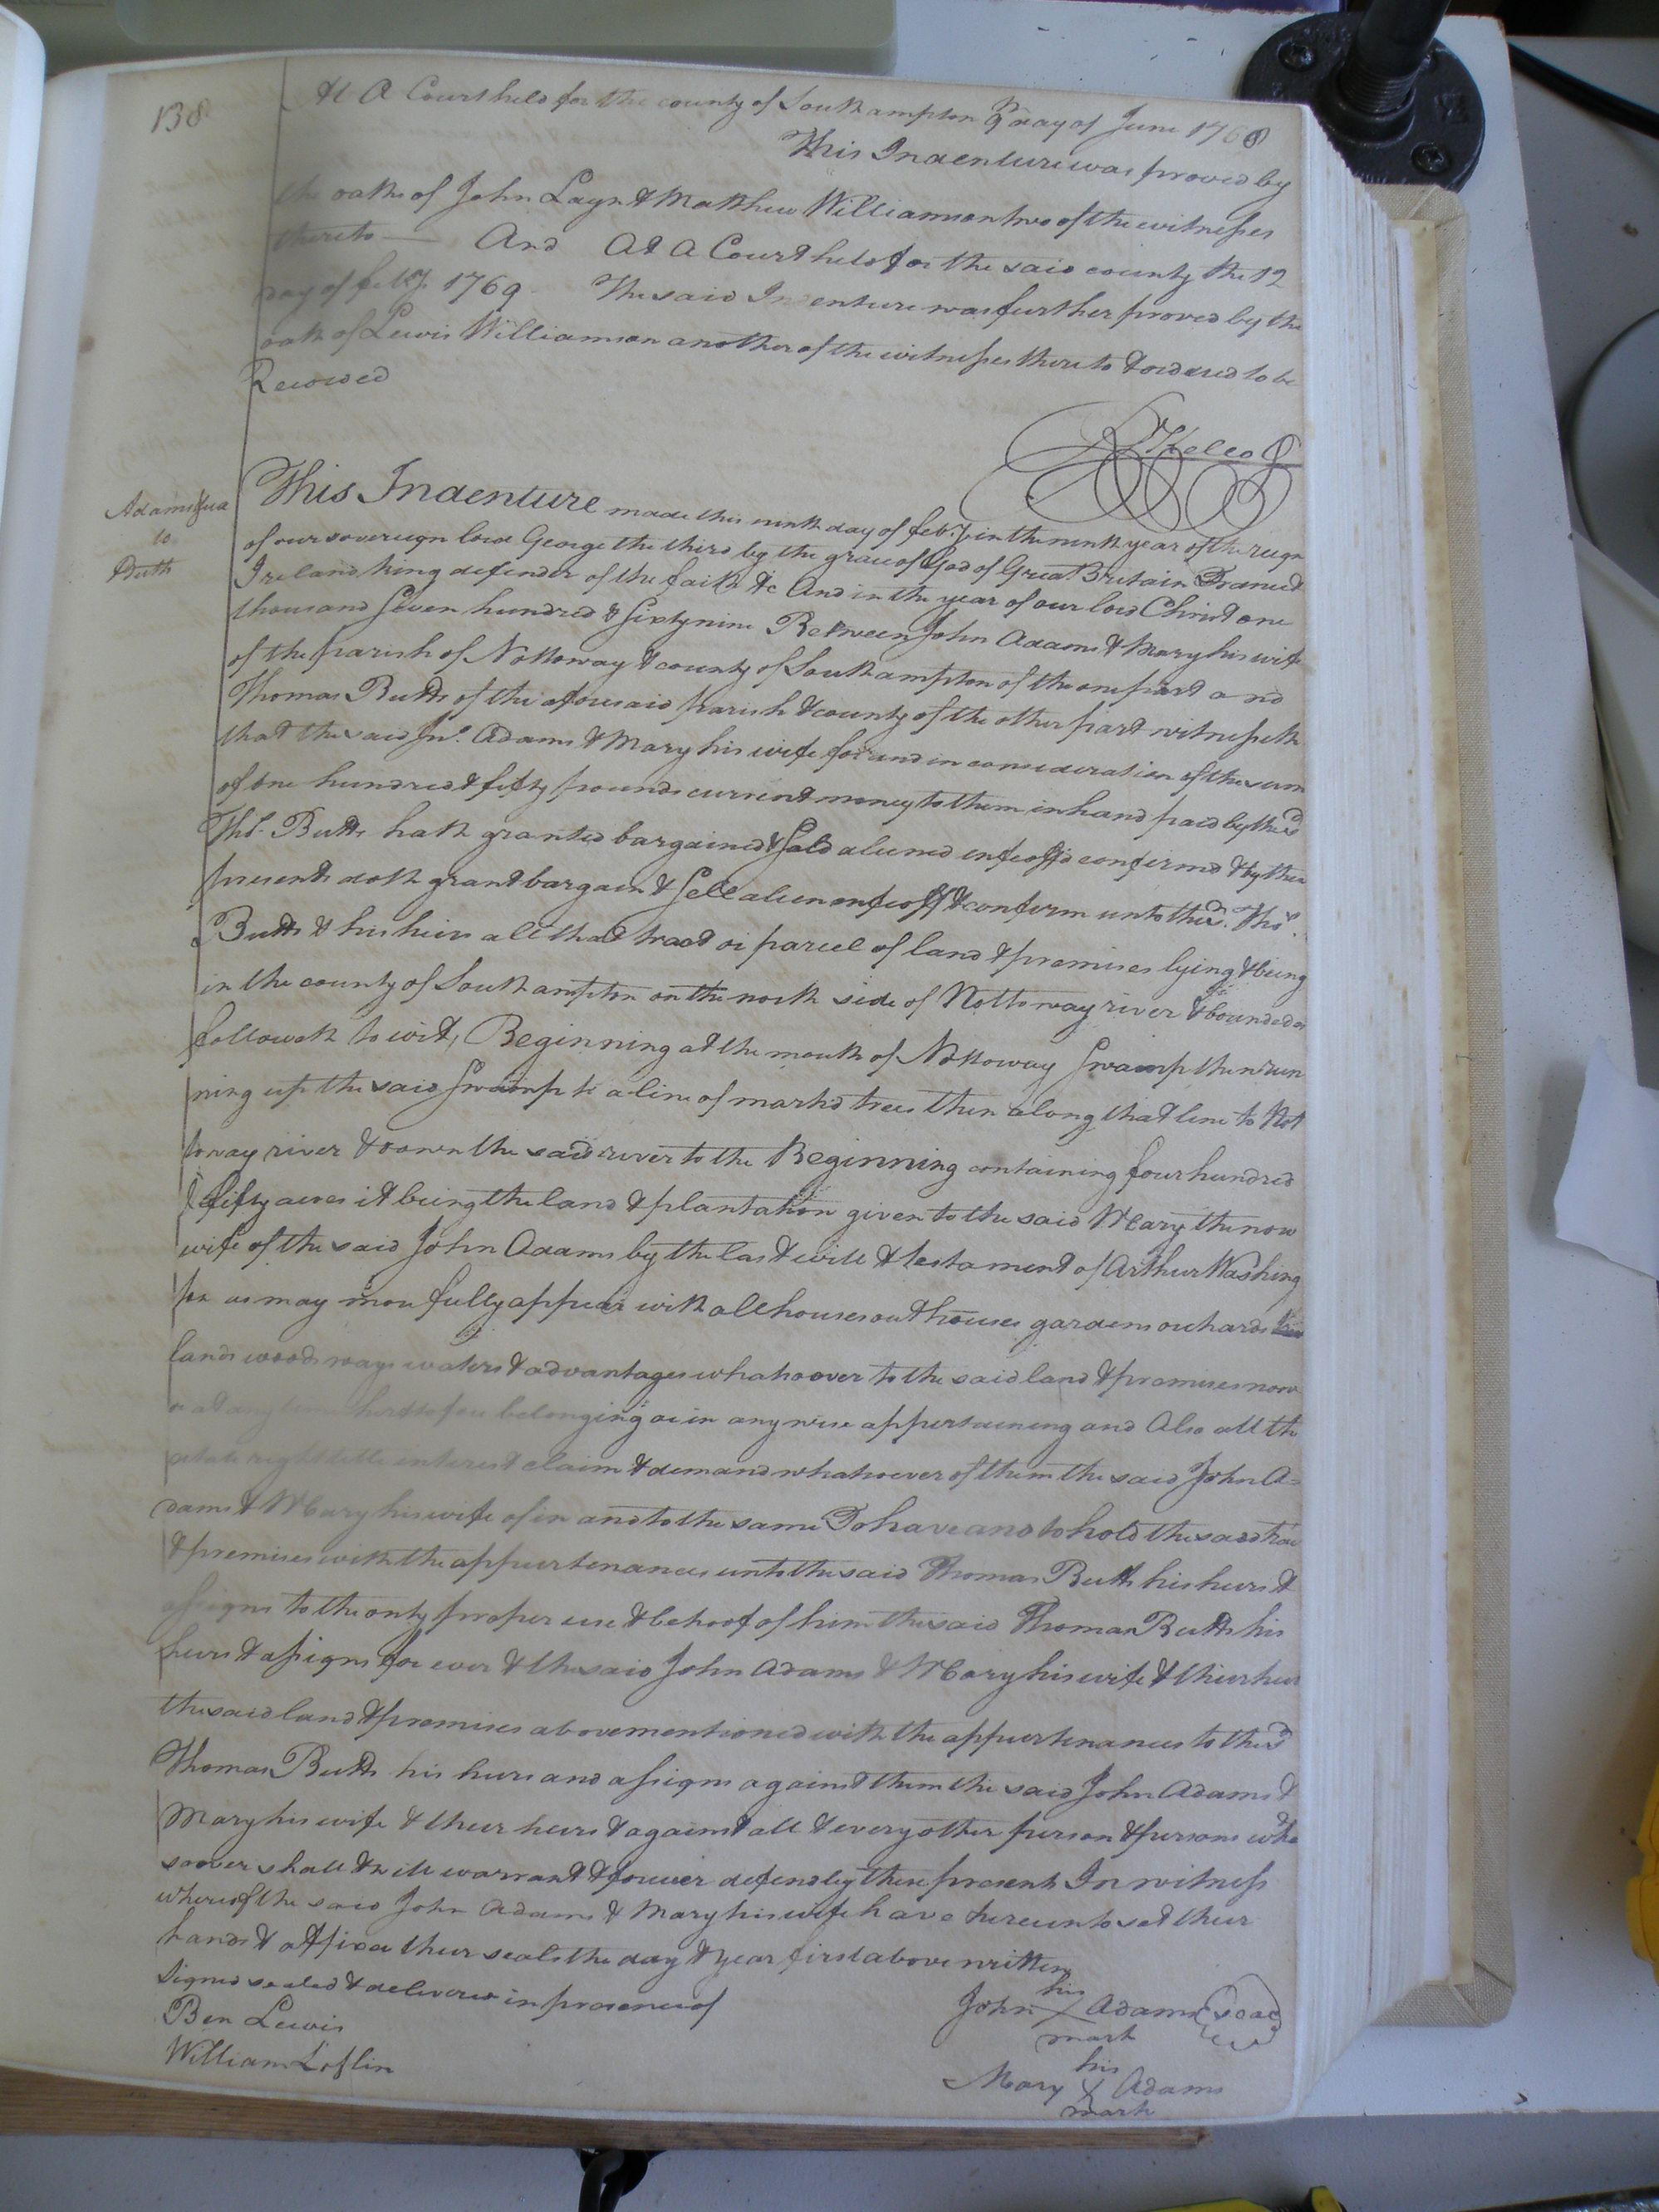 138
At A Court held for the county of Southampton 9 day of June 1768
This Indenture was proved by
the oaths of John Layn & Matthew Williamson two of the witnesses
thereto — And At A Court held for the said county the 12
day of feb.ry 1769 The said Indenture was further proved by the
oath of Lewis Williamson another of the witnesses thereto & ordered to be
Recorded
R Kello
Adams
to
Butts
This Indenture made this ninth day of feb.ry in the ninth year of the reign
of our sovereign lord George the third by the grace of God of Great Britain France &
Ireland king defender of the faith &c And in the year of our lord Christ one
thousand seven hundred & sixty nine Between John Adams & Mary his wife
of the parish of Nottoway & county of Southampton of the one part and
Thomas Butts of the aforesaid parish & county of the other part witnesseth
that the said Jno. Adams & Mary his wife for and in consideration of the sum
of one hundred & fifty pounds current money to them in hand paid by the sd
Thos. Butts hath granted bargained & sold aliened enfeoff'd confirmd & by these
presents doth grant bargain & sell alien enfeoff & confirm unto the sd. Thos.
Butts & his heirs all that tract or parcel of land & premises lying & being
in the county of Southampton on the north side of Nottoway river & bounded as
followeth to wit, Beginning at the mouth of Nottoway Swamp then run
ning up the said Swamp to a line of markd trees then along that line to Not
toway river & down the said river to the Beginning containing four hundred
& fifty acres it being the land & plantation given to the said Mary the now
wife of the said John Adams by the last will & testament of Arthur Washing
ton as may more fully appear with all houses outhouses gardens orchards
lands woods ways waters & advantages whatsoever to the said land & premises now
or at any time heretofore belonging or in any wise appertaining and Also all the
estate right title interest claim & demand whatsoever of them the said John A=
dams & Mary his wife of in and to the same To have and to hold the said
& premises with the appurtenances unto the said Thomas Butts his heirs &
assigns to the only proper use & behoof of him the said Thomas Butts his
heirs & assigns for ever & the said John Adams & Mary his wife & their heirs
the said land & premises above mentioned with the appurtenances to the sd
Thomas Butts his heirs and assigns against them the said John Adams &
Mary his wife & their heirs & against all & every other person & persons who
soever shall & will warrant & forever defend by these presents In witness
whereof the said John Adams & Mary his wife have hereunto set their
hands & affixd their seals the day & year first above written
Signed sealed & delivered in presence of
Ben Lewis
William Loflin
his
John X Adams (seal)
mark
his
Mary X Adams
mark